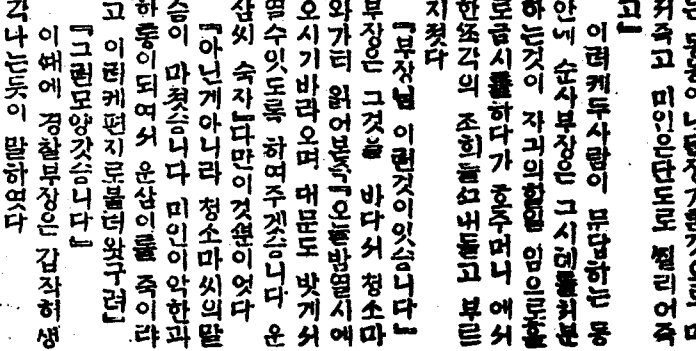 커죽고 미인은단도로 찔리어죽
고』
이러케두사람이 문답하는 동
안에 순사부장은 그시톄를
하는것이 자긔의할일 임으로
하다가 호주머니 에서
한쪼각의 조희를 내들고 부르
지젓다
『부장님 이런것이잇습니다』
부장은 그것을 바다서 청소마
와가티 읽어보『오늘밤열시에
오시기바라오며 대문도 밧게서
열수잇도록 하여주게습니다 운
삼씨 숙자』다만이것뿐이엇다
『아닌게아니라 청소마씨의말
슴이 마젓습니다 미인이악한과
하통이되여서 운삼이를 죽이랴
고 이러케편지로불너왓구려』
『그런모양갓습니다』
이때에 경찰부장은 갑작히생
각나는듯이 말하엿다